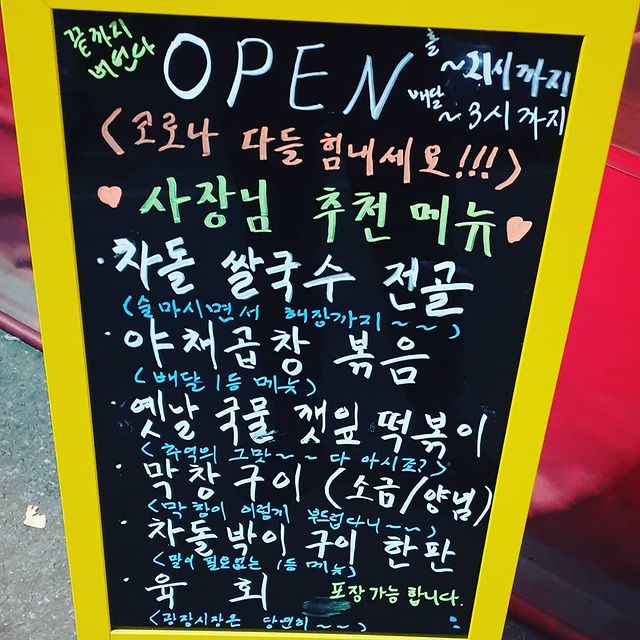 끝까지
버언다
OPEN
홀
~ 21시 까지
배달
~ 3시 까지
<코로나 다들 힘내세요!!!>
사장님 추천 메뉴
· 차돌 쌀국수 전골
(술마시면서 해장까지 ~ ~ )
· 야채곱창 볶음
< 배달 1등 메뉴 >
· 옛날 국물 깻잎 떡볶이
< 추억의 그맛 ~ ~ 다 아시죠? >
· 막창구이 (소금/양념)
<막창이 이렇게 부드럽다니 ~ ~ >
· 차돌박이 구이 한판
<말이 필요없는 1등 메뉴>
· 육 회
포장 가능 합니다.
<광장시장은 당연히 ~ ~ >